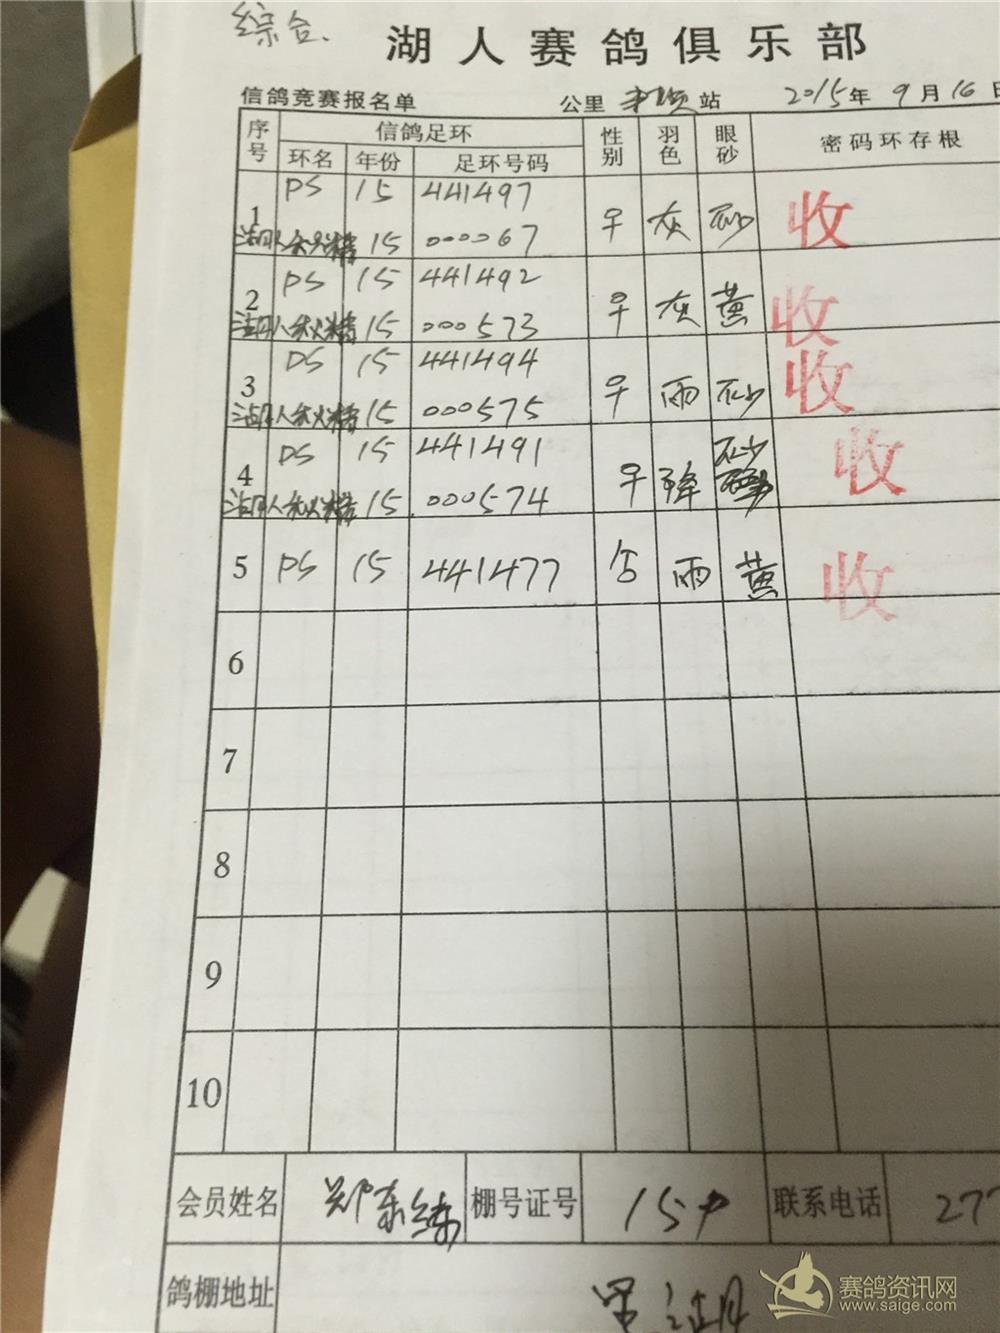 综合.
湖人赛鸽俱乐部
信鸽竞赛报名单 公里 站 2015年 9月 16日
序号 信鸽足环 性别 羽色 眼砂 密码环存根
环名 年份 足环号码
1 PS 15 441497 早 灰 砂 收
湖人秋棚 15 000067
2 PS 15 441492 早 灰 黄 收
15 000573
3 PS 15 441494 早 雨 砂 收
15 000575
4 PS 15 441491 早 绛 砂 收
15 000574
5 PS 15 441477 台 雨 黄 收
6
7
8
9
10
会员姓名 郑 棚号证号 15 联系电话 277
鸽棚地址
赛鸽资讯网
www.saige.com